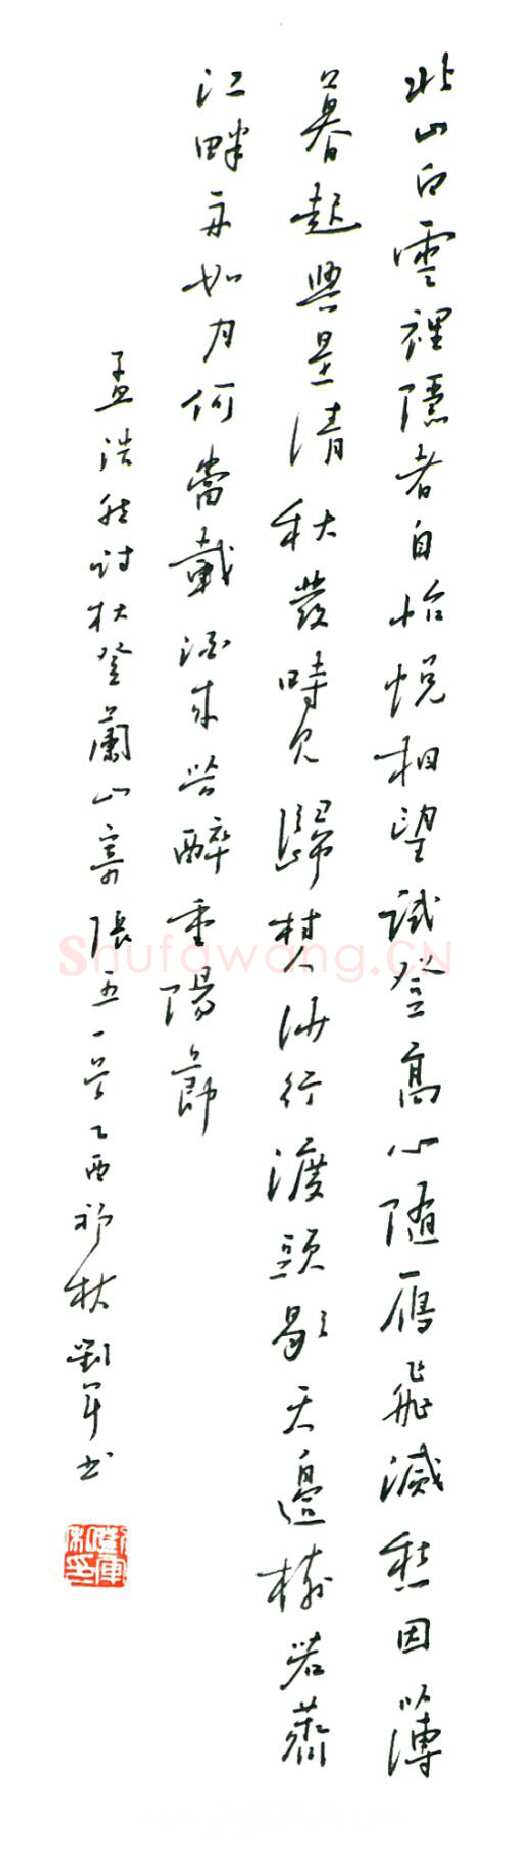 北山白雲裡隱者自怡悅相望試登高心隨雁飛滅愁因薄
暮起興是清秋發時見歸村人沙行渡頭歇天邊樹若薺
江畔舟如月何當載酒來共醉重陽節
孟浩然詩秋登蘭山寄張五一首乙酉初秋劉軍書
Shufawang.CN